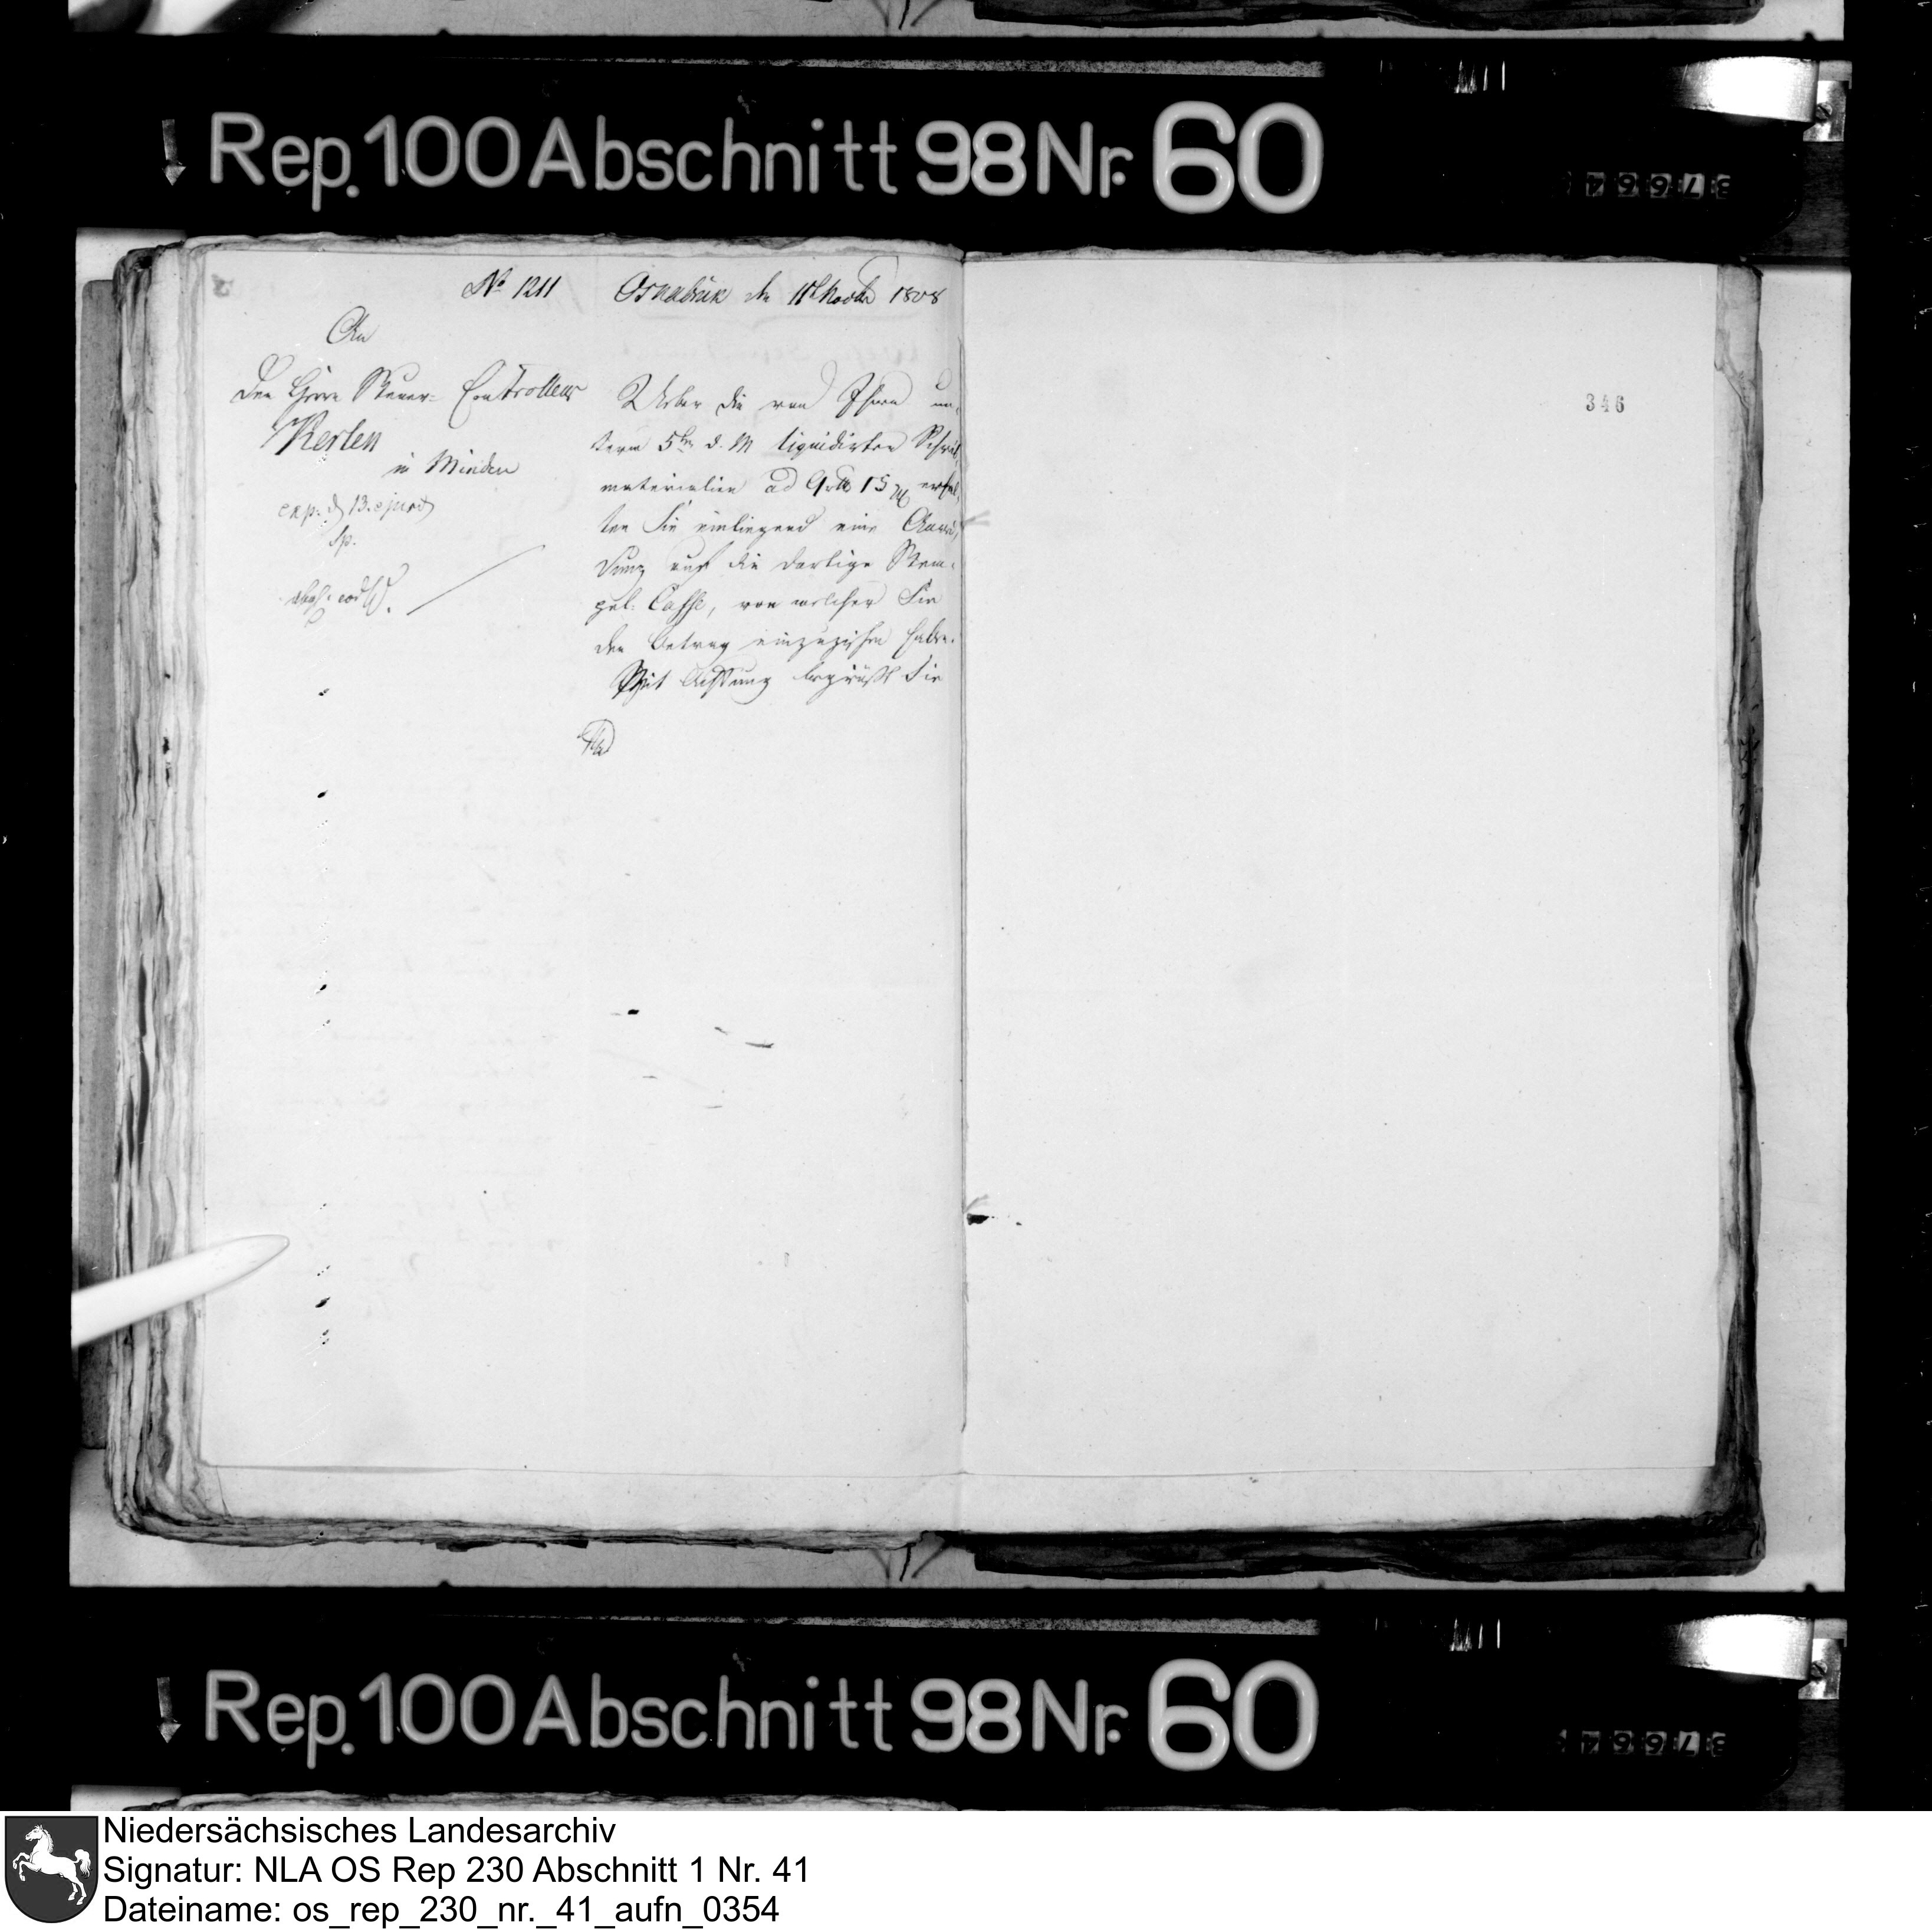 Rep. 100 Abschnitt 98 Nr. 60
37664
No 1211 Osnabrück den 11t Novbr 1808
An
Den Herrn Steuer- Controlleur
Kerten
in Minden
exp. d 13. ejusd
Sp.
abges. eod
Ueber die von Ihnen un-
term 5ten d. M liquidirten Schreib-
materialien ad 9 rtlr 15 erhal-
ten Sie einliegend eine Anwei-
sung auf die dortige Stem-
pel-Casse, von welcher Sie
den Betrag einzuziehen haben.
Mit Achtung begrüßt Sie
346
Rep. 100 Abschnitt 98 Nr. 60
37664
Niedersächsisches Landesarchiv
Signatur: NLA OS Rep 230 Abschnitt 1 Nr. 41
Dateiname: os_rep_230_nr._41_aufn_0354